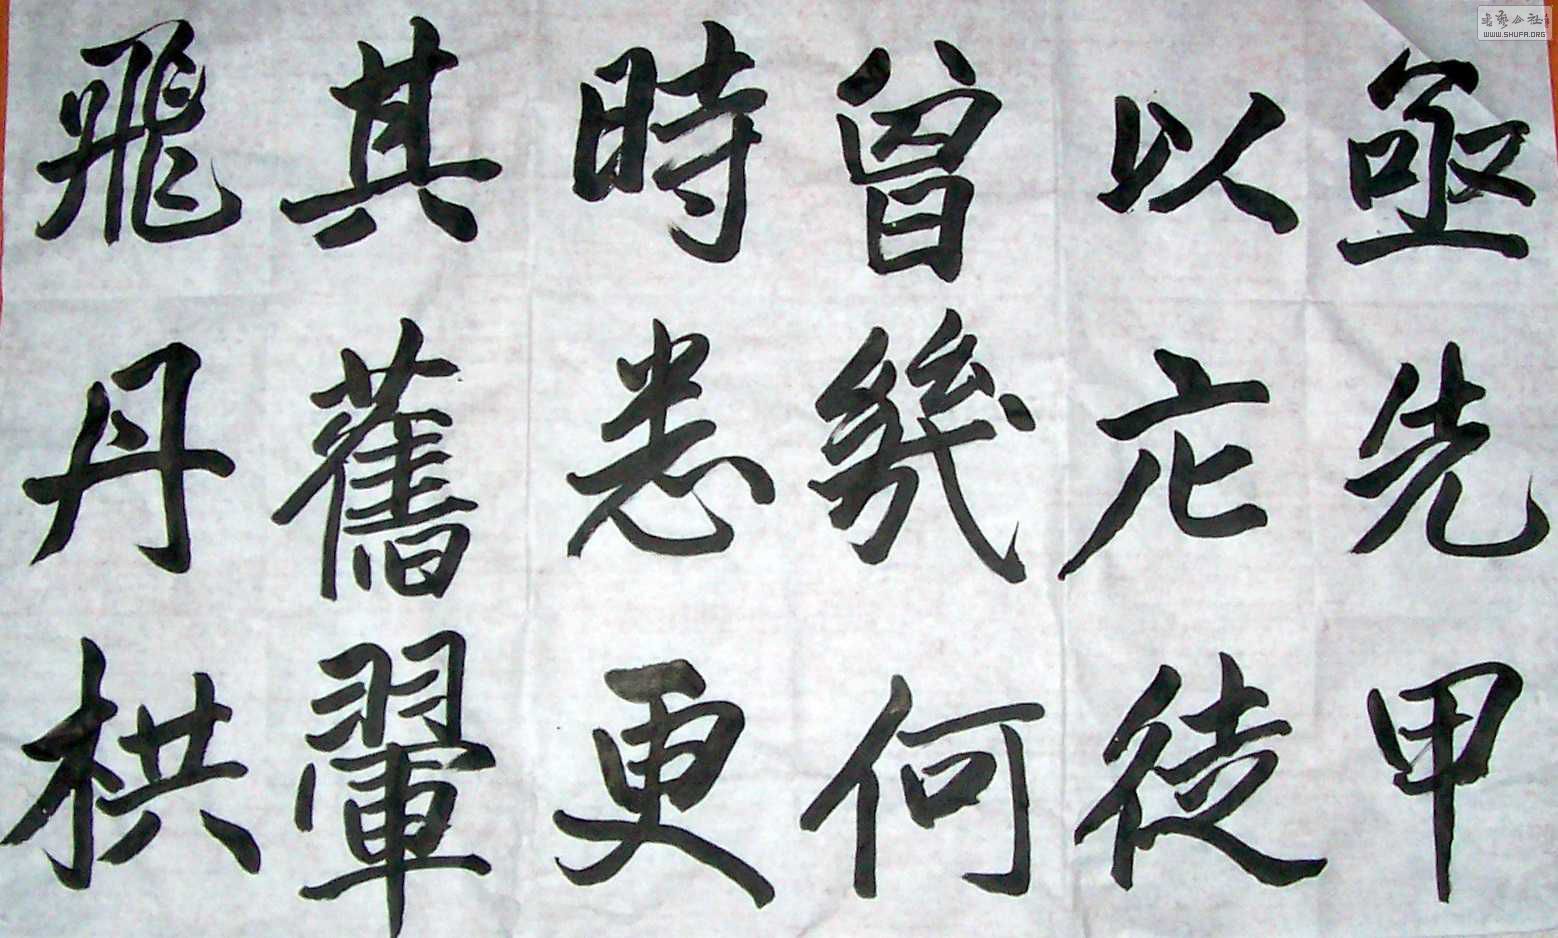 亟先甲
以庀徒
曾幾何
時悉更
其舊翬
飛丹栱
书艺公社
WWW.SHUFA.ORG